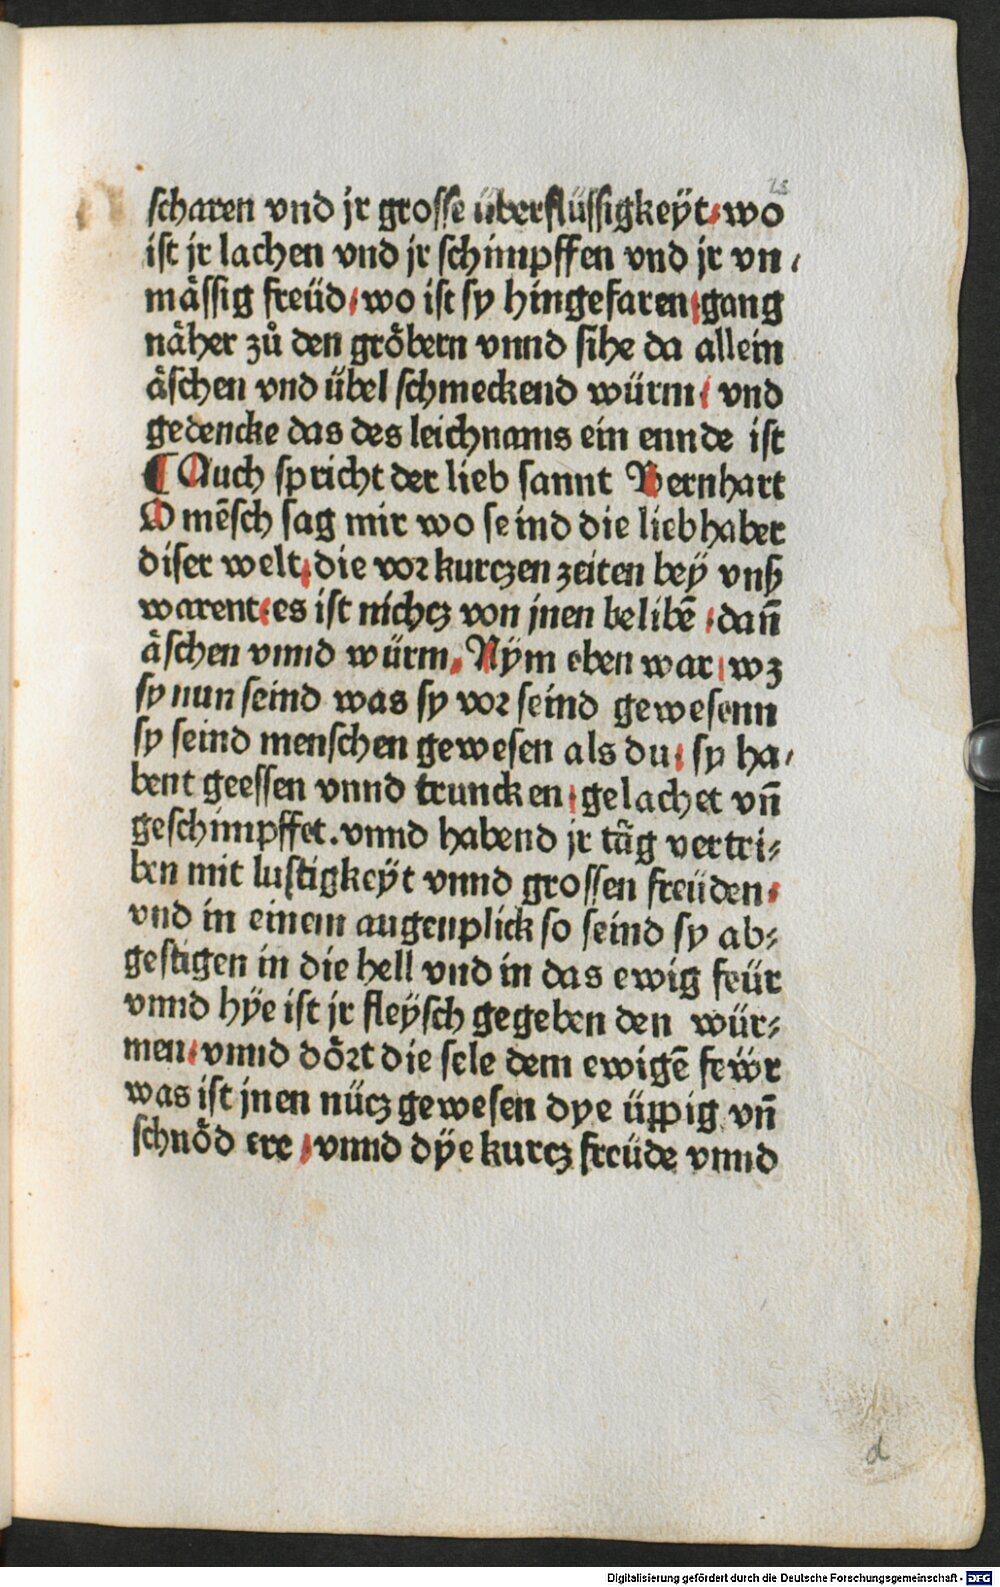 scharen vnd jr grosse überflüssigkeÿt wo
ist jr lachen vnd jr schimpffen vnd jr vn⸗
mässig freüd wo ist sy hingefaren gang
näher zů den gröbern vnnd sihe da allein
äschen vnd übel schmeckend würm vnd
gedencke das des leichnams ein ennde ist
¶ Auch spricht der lieb sannt Bernhart
O mēsch sag mir wo seind die liebhaber
diser welt die vor kurczen zeiten beÿ vnß
warent es ist nichcz von jnen belibē dan̄
äschen vnnd würm. Nÿm eben war wz
sy nun seind was sy vor seind gewesenn
sy seind menschen gewesen als du sy ha⸗
bent geessen vnnd truncken gelachet vn̄
geschimpffet. vnnd habend jr täg vertri⸗
ben mit lustigkeÿt vnnd grossen freüden
vnd in einem augenplick so seind sy ab⸗
gestigen in die hell vnd in das ewig feür
vnnd hÿe ist jr fleÿsch gegeben den wür⸗
men vnnd dört die sele dem ewigē fewr
was ist jnen nücz gewesen dye üppig vn̄
schnöd ere vnnd dÿe kurcz freüde vnnd
d
Digitalisierung gefördert durch die Deutsche Forschungsgemeinschaft - DFG